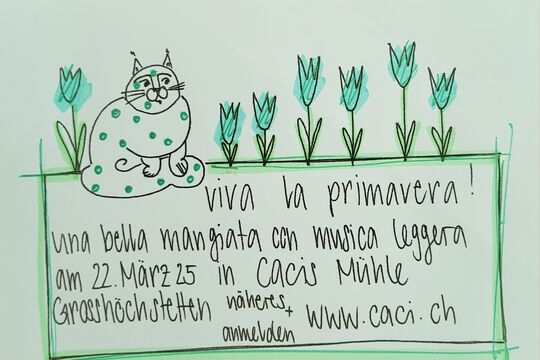 viva la primavera!
una bella mangiata con musica leggera
am 22. März 25 in Cacis Mühle
Grosshöchstetten näheres + anmelden www.caci.ch